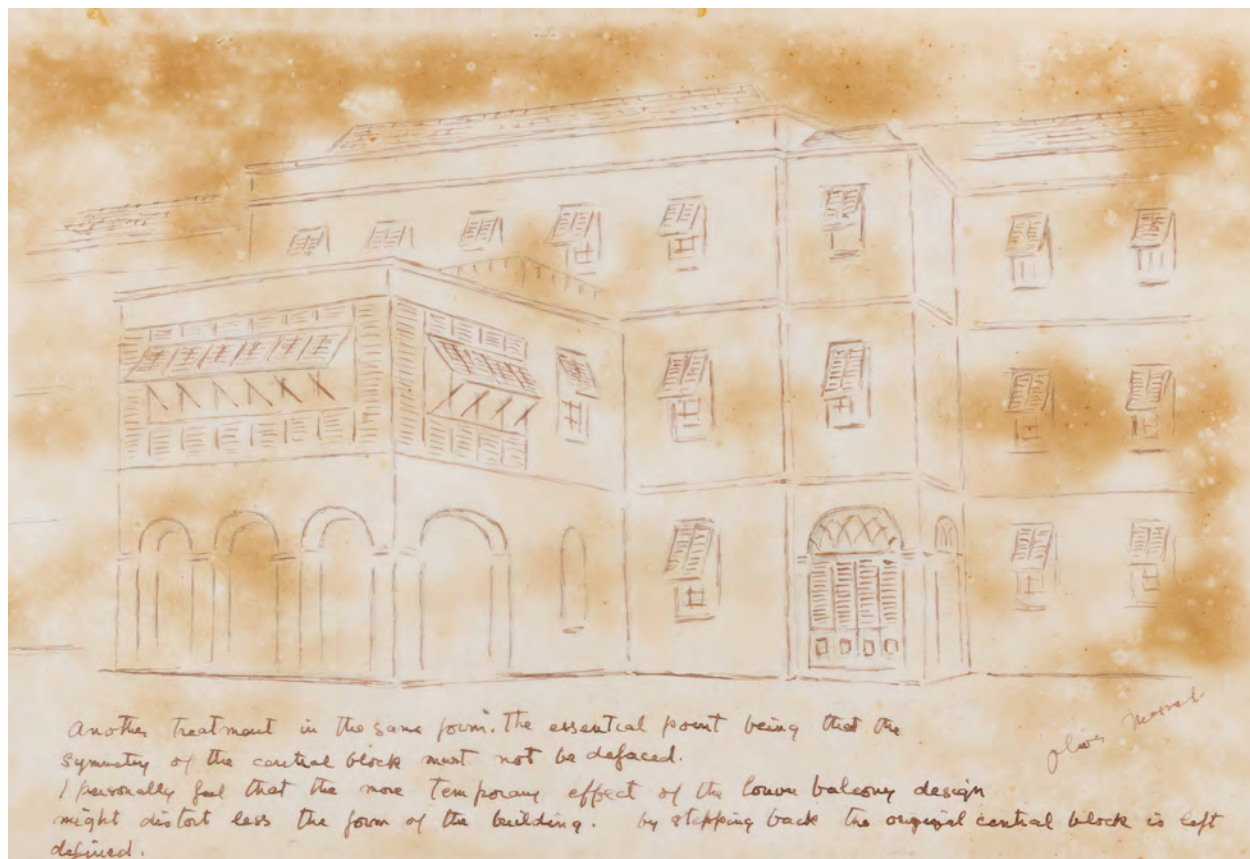 Another treatment in the same form. The essential point being that the
symmetry of the central block must not be defaced.
I personally feel that the more temporary effect of the louvre balcony design
might distort less the form of the building. by stepping back the original central block is left
defined.
Oliver Messel